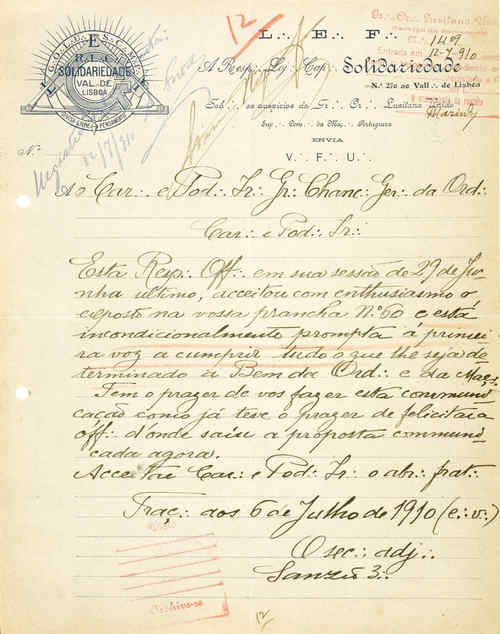 12
Gr.·. Or.·. Lusitano Unido
N.º 149
Entrada em 12-7-910
L.·. E.·. F.·.
A Resp.·. Loj.·. Cap.·. Solidariedade
N.º 270 ao Vall.·. de Lisboa
Sob os auspicios do Gr.·. Or.·. Lusitano Unido
Sup.·. Cons.·. da Maç.·. Portugueza
ENVIA
V.·. F.·. U.·.
E
R.·. L.·. C.·.
SOLIDARIEDADE
VAL.·. DE
LISBOA
12/7/910
N.º
Ao Car.·. e Pod.·. Ir.·. Gr.·. Chanc.·. Ger.·. da Ord.·.
Car.·. e Pod.·. Ir.·.
Esta Resp.·. Off.·. em sua sessão de 29 de Ju-
nho ultimo, acceitou com enthusiasmo o
exposto na vossa prancha N.º 60 e está
incondicionalmente prompta á primei-
ra voz a cumprir tudo o que lhe seja de-
terminado a Bem da Ord.·. e da Maç.·.
Tem o prazer de vos fazer esta communi-
cação como já teve o prazer de felicitar a
off.·. d'onde saiu a proposta communi-
cada agora.
Acceitae Car.·. e Pod.·. Ir.·. o abr.·. frat.·.
Traç.·. aos 6 de Julho de 1910 (e.·. v.·.)
O sec.·. adj.·.
3.·.
Archive-se
12